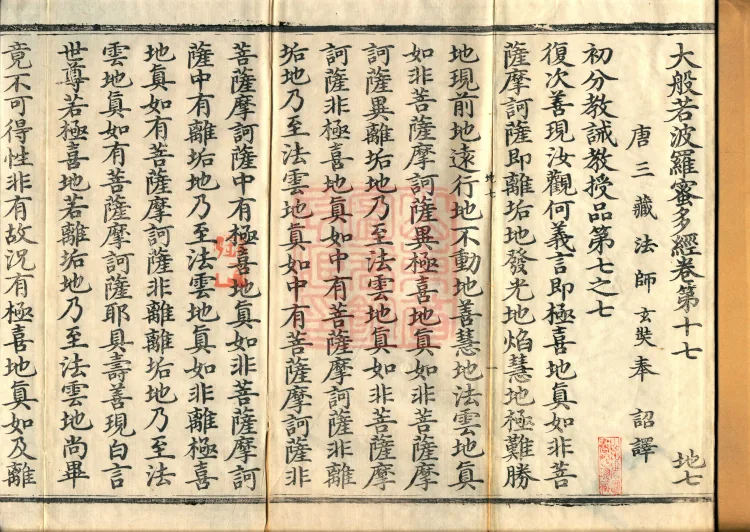 大般若波羅蜜多經卷第十七 地七
唐三藏法師玄奘奉 詔譯
初分教誡教授品第七之七
復次善現汝觀何義言即極喜地眞如非菩
薩摩訶薩即離垢地發光地焰慧地極難勝
地現前地遠行地不動地善慧地法雲地眞
地七
如非菩薩摩訶薩異極喜地眞如非菩薩摩
訶薩異離垢地乃至法雲地眞如非菩薩摩
訶薩非極喜地眞如中有菩薩摩訶薩非離
垢地乃至法雲地眞如中有菩薩摩訶薩非
菩薩摩訶薩中有極喜地眞如非菩薩摩訶
薩中有離垢地乃至法雲地眞如非離極喜
地眞如有菩薩摩訶薩非離離垢地乃至法
雲地眞如有菩薩摩訶薩耶具壽善現白言
世尊若極喜地若離垢地乃至法雲地尚畢
竟不可得性非有故況有極喜地眞如及離